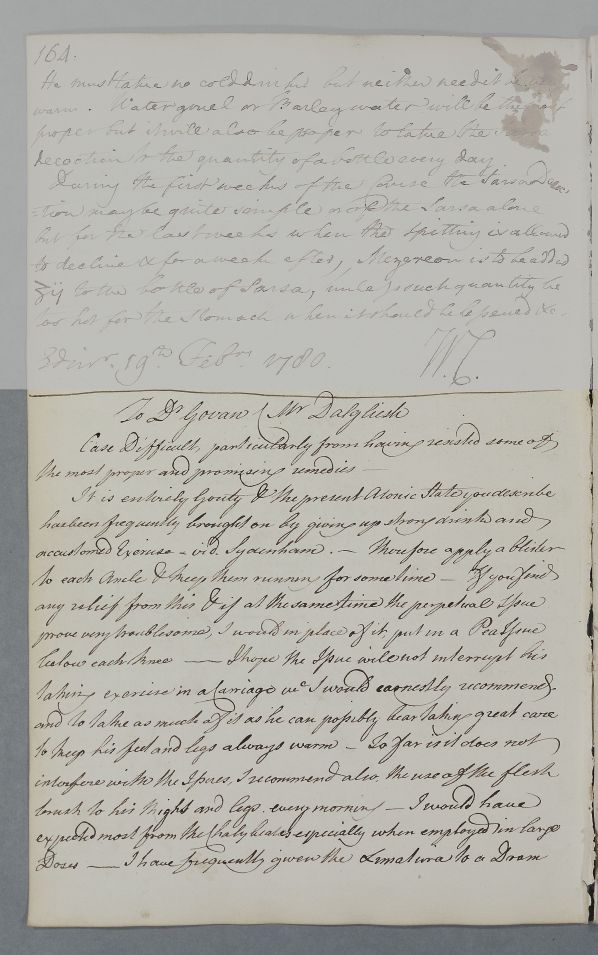 164.
He must take no cold drink but neither need it be
warm. Water gruel or Barley water will be the most
proper but it will also be proper to take the Sarsa
decoction to the quantity of a bottle every day
During the first weeks of the Course the Sarsa decoc
=tion may be quite simple or of the Sarsa alone
but for the last weeks when the spitting is allowed
to decline & for a week after, Mezereon is to be added
ʒij to the bottle of Sarsa, unless such quantity be
too hot for the Stomach when it should be lessened &c.
Edinr. 19th. Febry. 1780. W.C.
To Dr Govan (Mr Dalgliesh
Case Difficult, particularly from having resisted some of
the most proper and promising remedies —
It is entirely Gouty & the present Atonic State you describe
has been frequently brought on by giving up strong drink and
accustomed Exercise - vid. Sydenham. — therefore apply a blister
to each Ancle & keep them running for some time — If you find
any relief from this & if at the same time the perpetual Issue
prove very troublesome, I would in place of it put in a Pea Issue
below each Knee —— I hope the Issue will not interrupt his
taking exercise in a Carriage wc. I would earnestly recommend,
and to take as much of it as he can possibly bear taking great care
to keep his feet and legs always warm — So far as it does not
interfere with the Issues, I recommend also the use of the flesh
brush to his thighs and legs every morning — I would have
expected most from the Chalybeates especially when employed in large
Doses —— I have frequently given the Limatura to a Dram